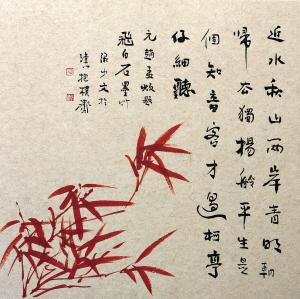 近水山兩岸青明朝
歸去獨揚舲平生是
個知音客才過柯亭
仔細聽
元趙孟頫題
飛白石墨竹
少文於
抱樸齋